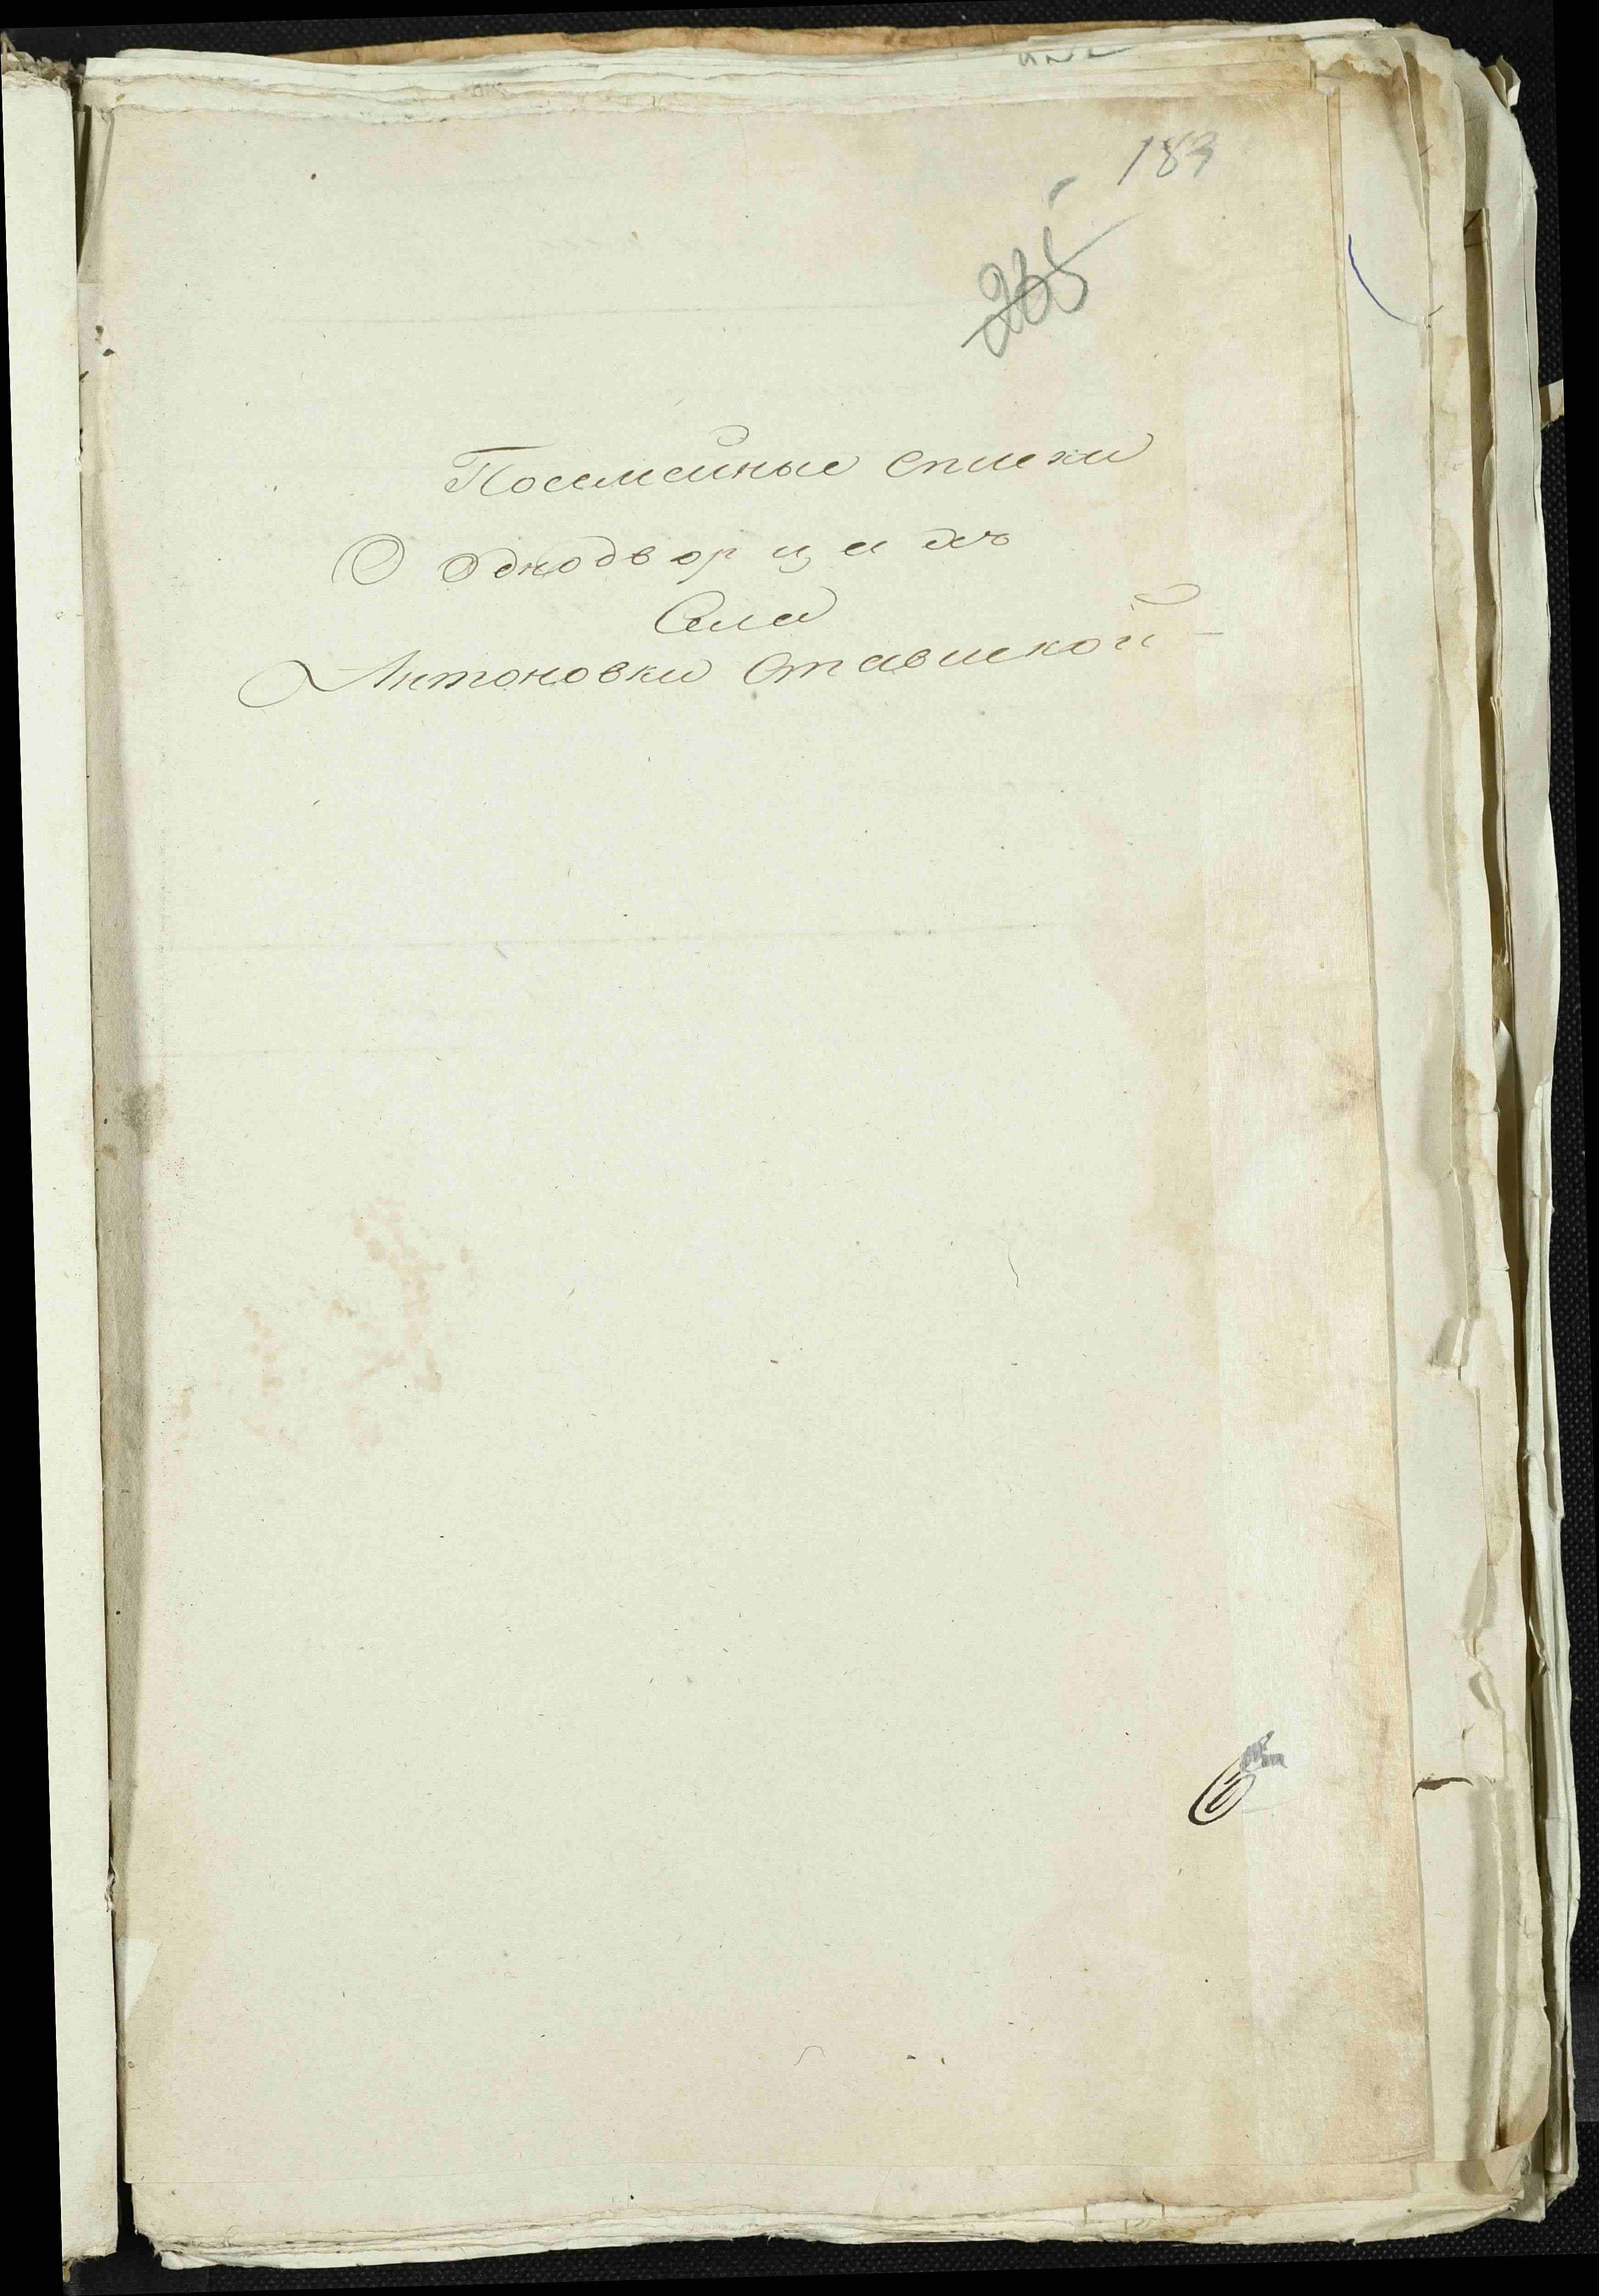 183
235
Посемейные списки
О Однодворцахъ
Села
Антоновки Ставиской